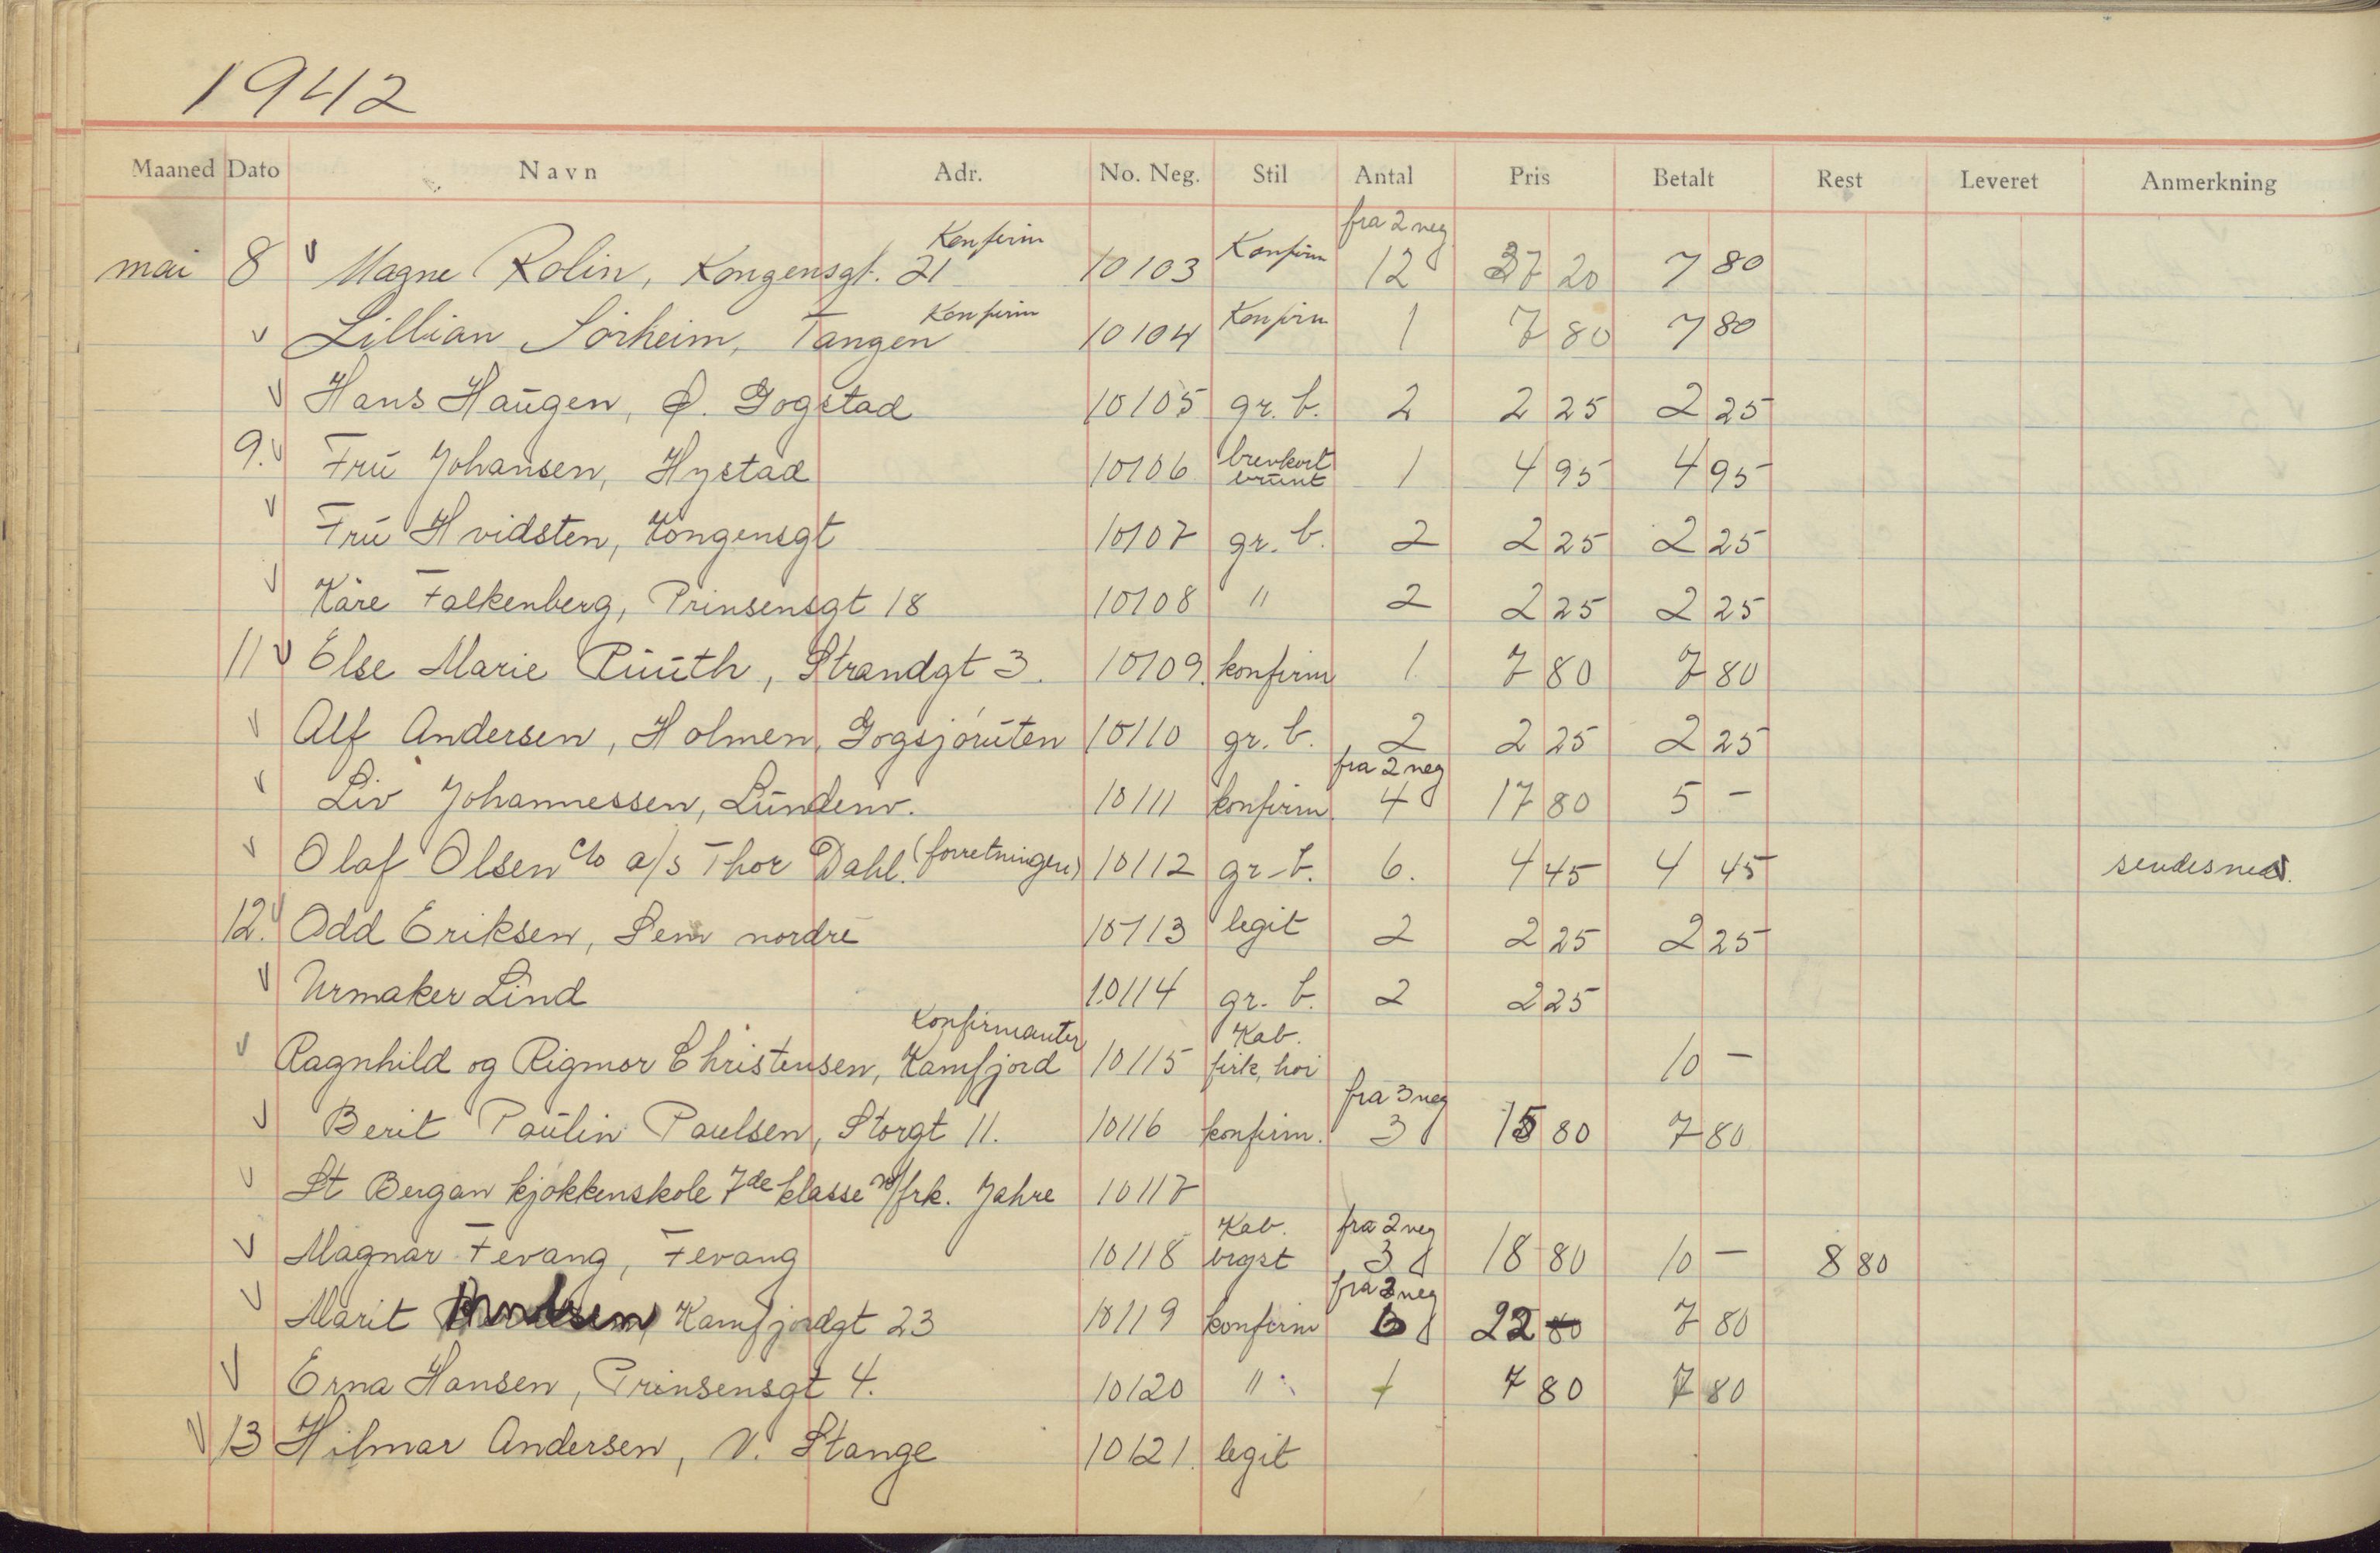 1942
Maaned Dato Navn Adr. No. Neg. Stil Antal Pris Betalt Rest Leveret Anmerkning
mai 8 v Magne Rolin, Kongensgt. 21 Konfirm 10103 Konfirm fra 2 neg 12 37 20 7 80
v Lillian Sörheim, Tangen Konfirm 10104 Konfirm 1 7 80 7 80
v Hans Haugen, Ø. Gogstad 10105 gr. b. 2 2 25 2 25
9. v Frū Johansen, Hystad 10106 brevkort brunt 1 4 95 4 95
v Frū Hvidsten, Kongensgt 10107 gr. b. 2 2 25 2 25
v Kåre Falkenberg, Prinsensgt 18 10108 " 2 2 25 2 25
11 v Else Marie Puuth, Strandgt 3. 10109. konfirm 1 7 80 7 80
v Alf Andersen, Holmen, Gogsjøruten 10110 gr. b. 2 2 25 2 25
v Liv Johannessen, Lundenv. 10111 konfirm fra 2 neg 4 17 80 5 –
v Olaf Olsen c/o a/s Thor Dahl. (forretningen) 10112 gr. b. 6. 4 45 4 45 sendes ned.
12. v Odd Eriksen, Sem nordre 10113 legit 2 2 25 2 25
v Urmaker Lind 10114 gr. b. 2 2 25
v Ragnhild og Rigmor Christensen, Kamfjord Konfirmanter 10115 Kab. firk, hoi 10 –
v Berit Paulin Paulsen, Storgt 11. 10116 konfirm. fra 3 neg 3 15 80 7 80
v St Bergan kjøkkenskole 7de klasse v/frk. Jahre 10117
v Magnar Fevang, Fevang 10118 Kab. bryst fra 2 neg 3 18 80 10 – 8 80
v Marit Kamfjordgt 23 10119 konfirm fra 3 neg 6 22 80 7 80
v Erna Hansen, Prinsensgt 4. 10120 " 1 7 80 7 80
v 13 Hilmar Andersen, V. Stange 10121. legit